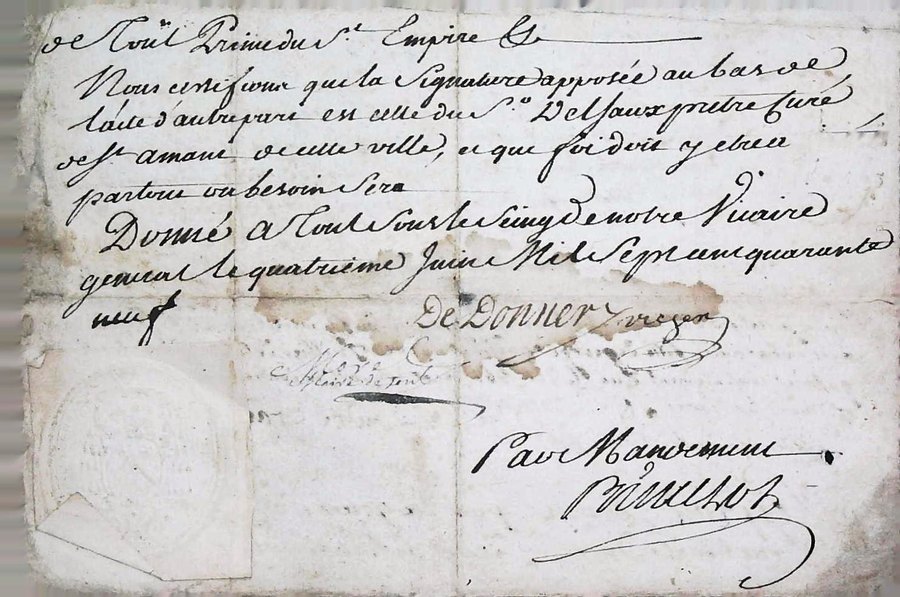 de Toul Prince du St. Empire &c
Nous certifions que la Signature apposée au bas de
l'acte d'autre part est celle du Sr. Delsaux pretre Curé
de St amant de cette ville, et que foi doit y etre a
partout ou besoin sera
Donné a Toul sous le Seing de notre Vicaire
general le quatrieme Juin Mil Sept cent quarante
neuf
De Donner vic gen
de Toul
Par Mandement